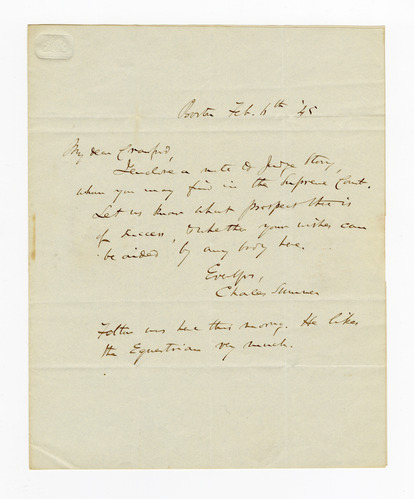 Boston Feb. 6th '45
My dear Crawford,
I enclose a note to Judge Story,
whom you may find in the Supreme Court.
Let us know what prospect there is
of success, & whether your wishes can
be aided by any body here.
Ever Yrs,
Charles Sumner
Felton was here this morning. He likes
the Equestrian very much.